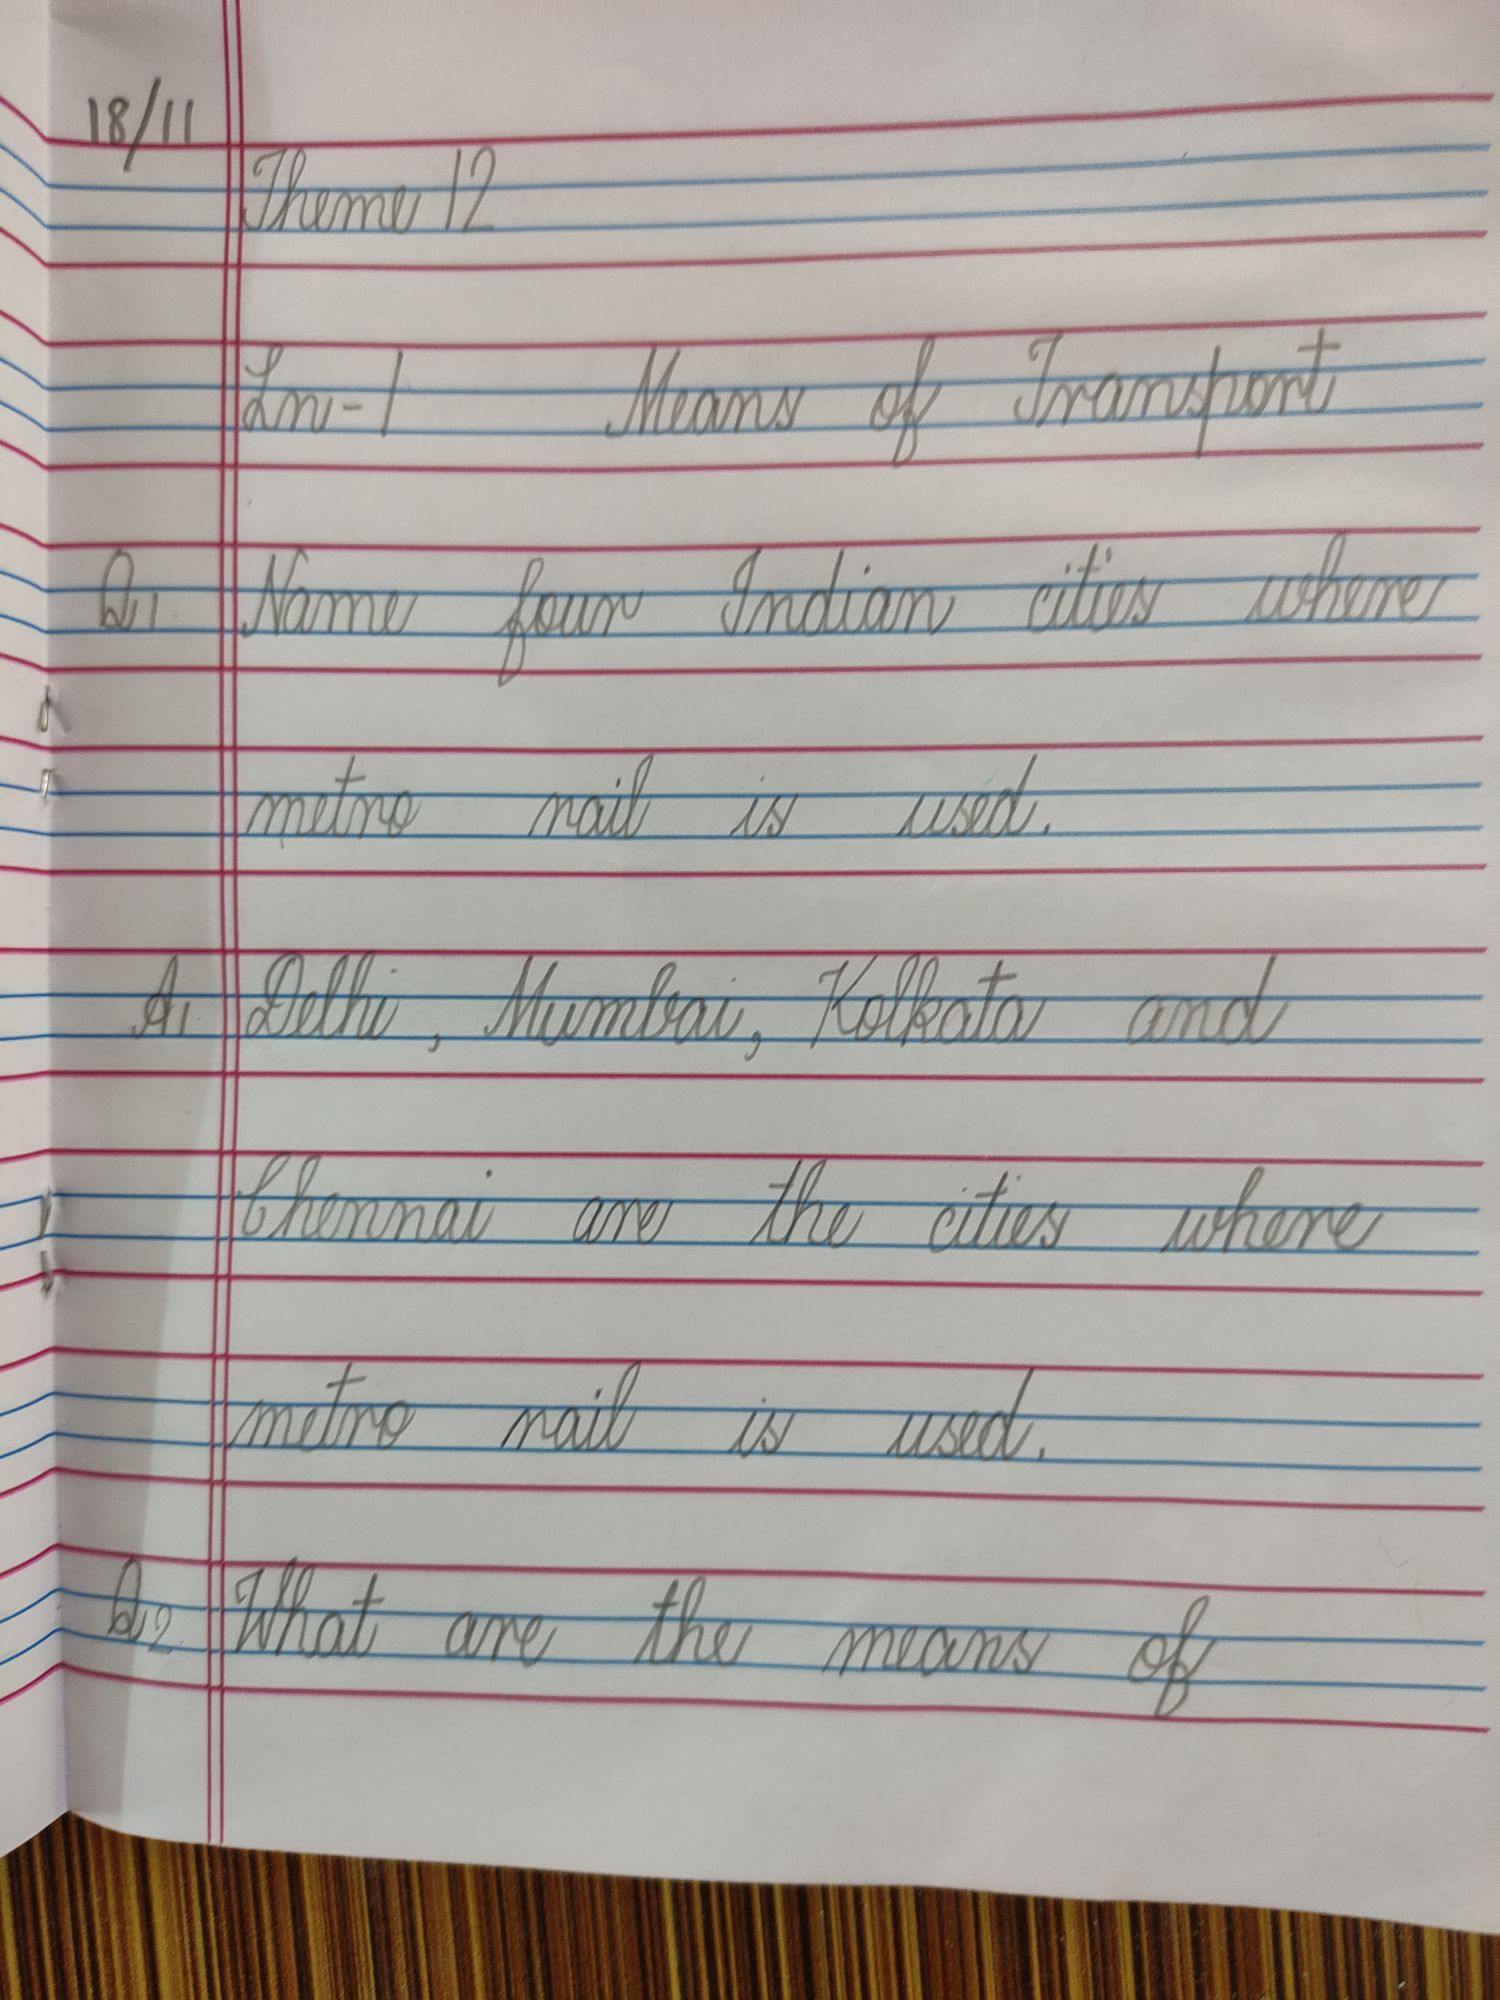 18/11
Theme 12
Ln-1 Means of Transport
Q1. Name four Indian cities where
metro rail is used.
A1. Delhi, Mumbai, Kolkata and
Chennai are the cities where
metro rail is used.
Q2. What are the means of